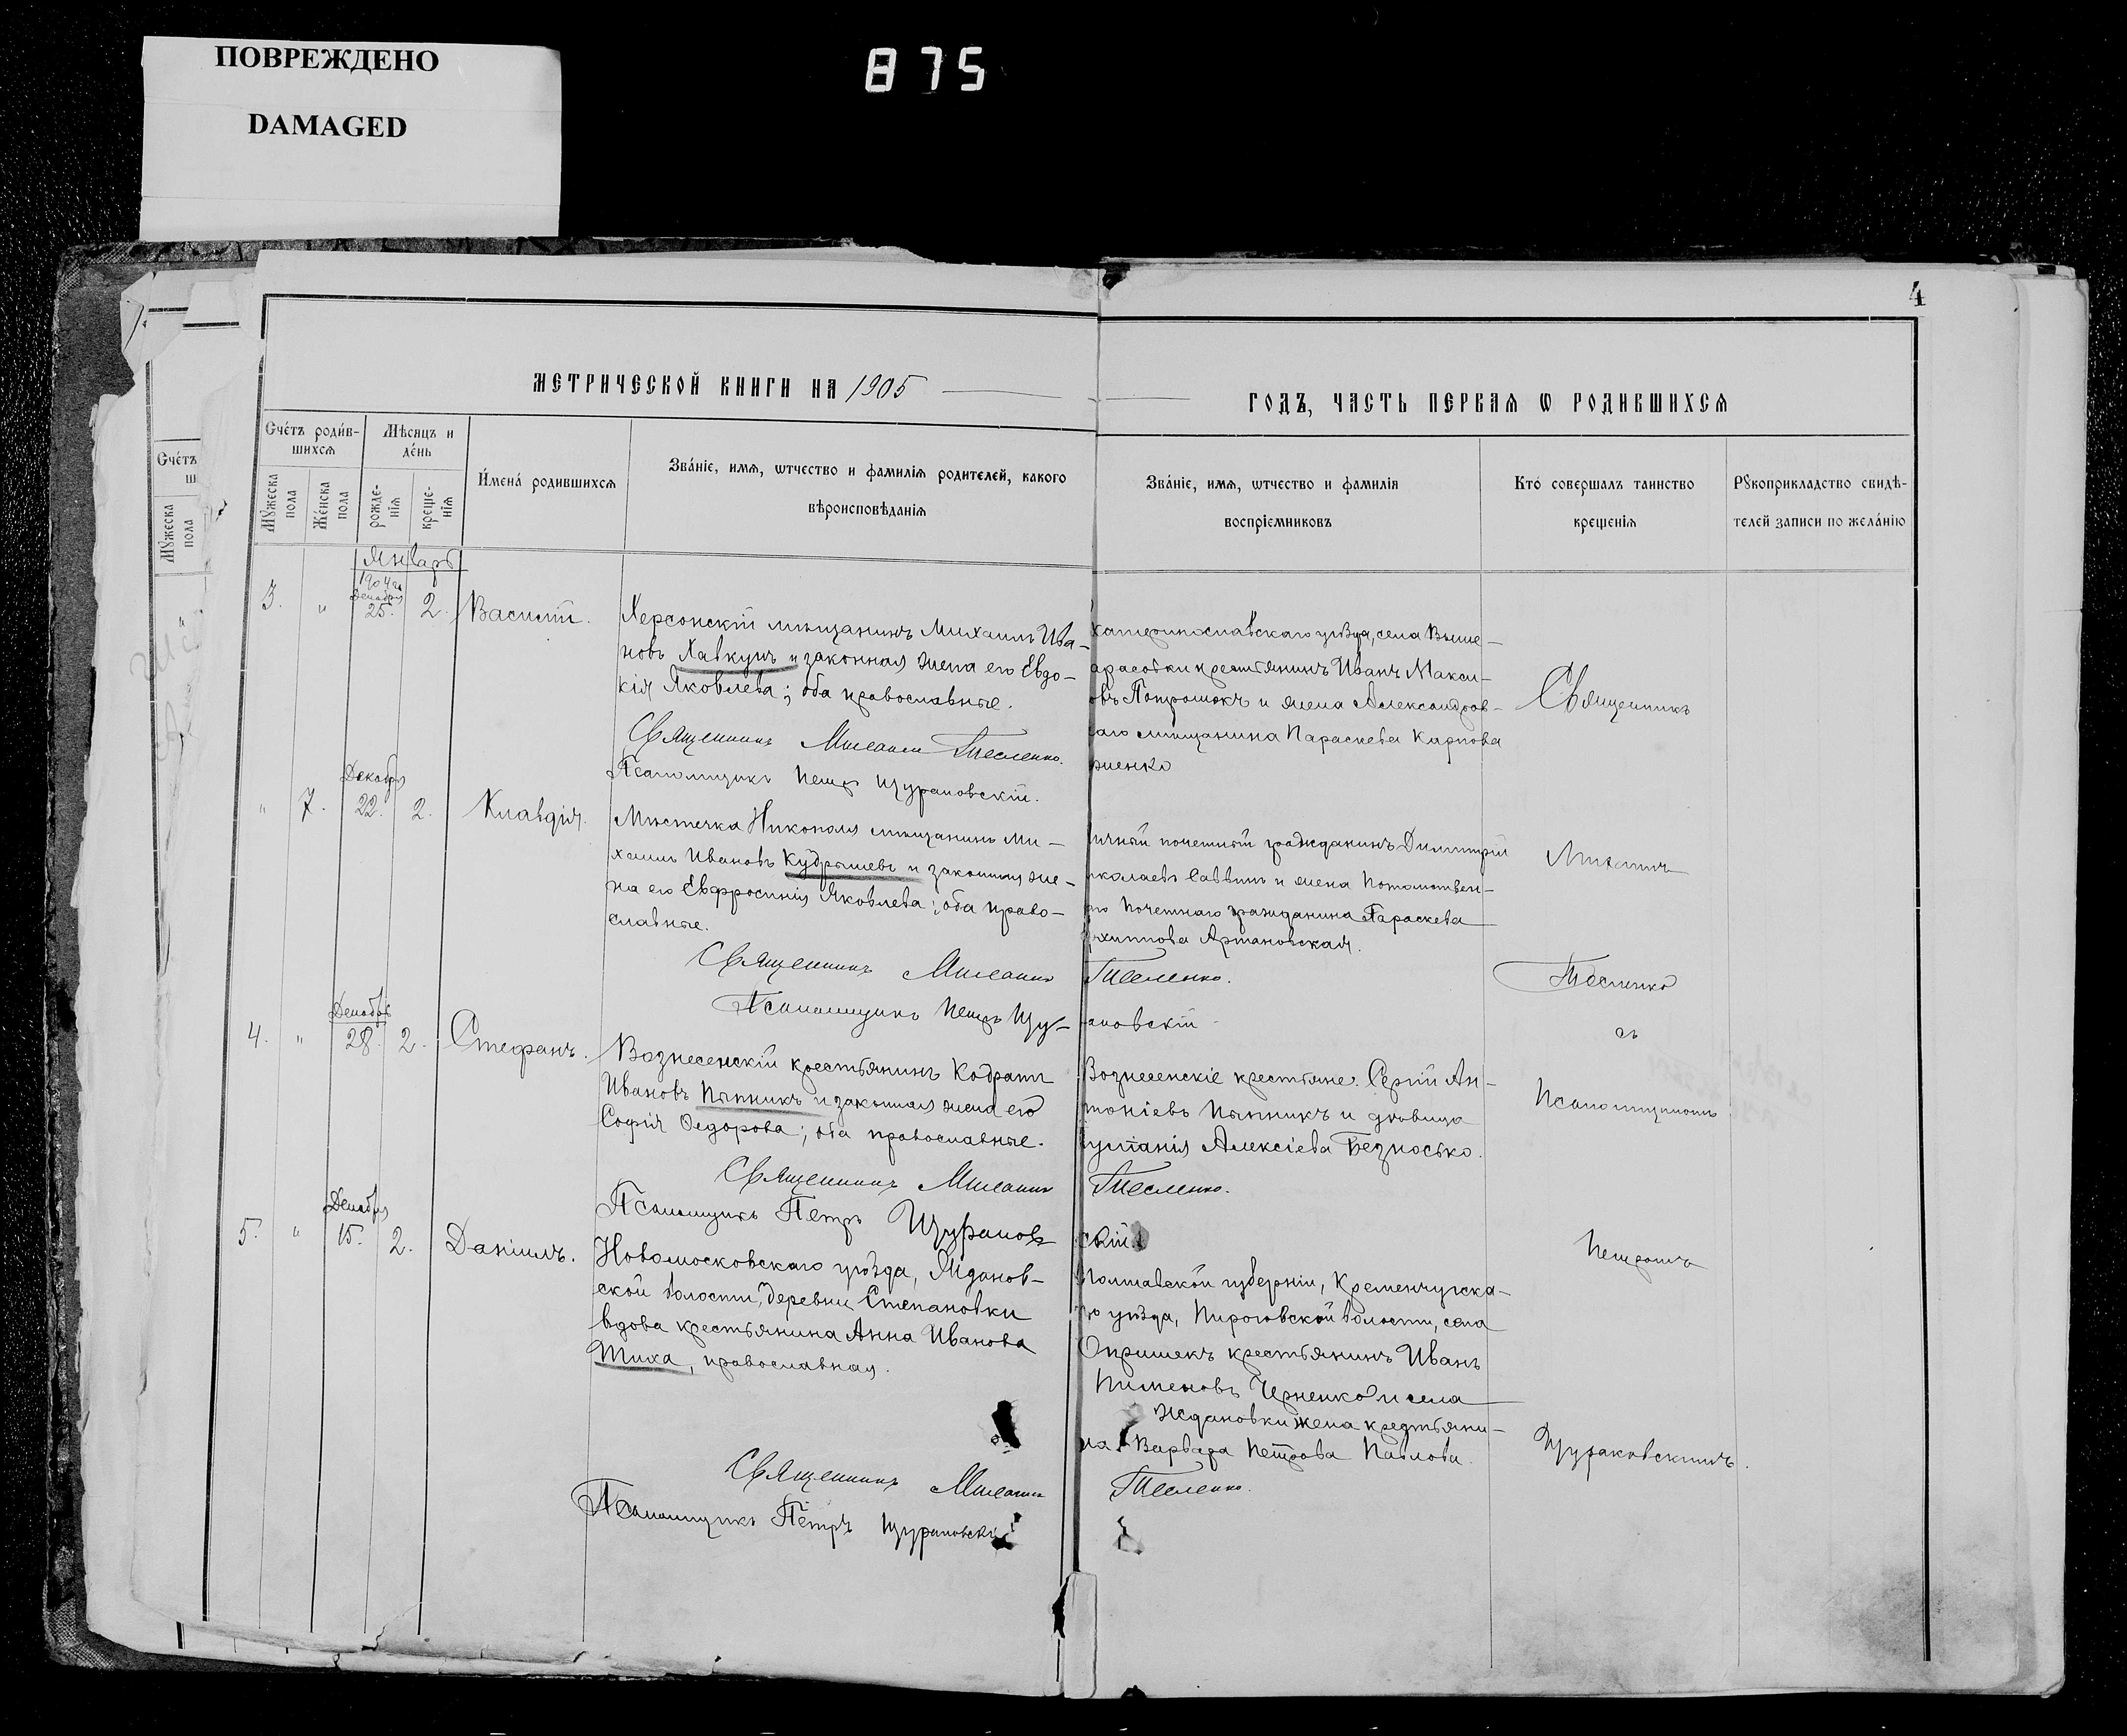 ПОВРЕЖДЕНО
DAMAGED
875
4
МЕТРИЧЕСКОЙ КНИГИ НА 1905
ГОДЪ, ЧАСТЬ ПЕРВАѦ Ѡ РОДИВШИХСѦ
Счéтъ роди́в-
шихсѧ
Мѣсѧцъ и
дéнь
Мꙋжеска
пола
Жéнска
пола
рожде-
нїѧ
креще-
нїѧ
И́мена́ родившихсѧ
Зва́нїе, имѧ, ѡтчество и фамилїѧ родителей, какого
вѣроисповѣданїѧ
Зва́нїе, имѧ, ѡтчество и фамилїѧ
воспрїемниковъ
Кто́ совершалъ таинство
крещенїѧ
Рꙋкоприкладство свидѣ-
телей записи по жела́нїю
Счéтъ
ш
Мꙋжеска
пола
Январь
1904 г.
Декабря
3. " 25. 2. Василій.
Херсонскій мѣщанинъ Михаилъ Ива-
новъ Хавкунъ и законная жена его Евдо-
кія Яковлева; оба православные.
Священникъ Михаилъ Тесленко.
Псаломщикъ Петръ Щурановскій.
катеринославскаго уѣзда, села Выше-
арасовки крестьянинъ Иванъ Макси-
овъ и жена Александров-
каго мѣщанина Параскева Карпова
Священникъ
Декабря
" 7. 22. 2. Клавдія.
Мѣстечка Никополя мѣщанинъ Ми-
хаилъ Ивановъ Кудрышевъ и законная же-
на его Евфросинія Яковлева; оба право-
славные.
Священникъ Михаилъ Тесленко.
Псаломщикъ Петръ Щу-
ановскій.
ичный почетный гражданинъ Димитрій
иколаевъ Саввинъ и жена Потомствен-
го Почетнаго гражданина Параскева
рхиппова Артановская.
Михаилъ
Тесленко
съ
Декабря
4. " 28. 2. Стефанъ.
Вознесенскій крестьянинъ Кодратъ
Ивановъ Пятникъ и законная жена его
Софія Ѳедорова; оба православные.
Священникъ Михаилъ Тесленко.
Псаломщикъ Петръ Щурановскій
Вознесенскіе крестьяне: Сергій Ан-
тоніевъ Пятникъ и дѣвица
уліанія Алексіева Безносько.
Псаломщикомъ
Декабря
5. " 15. 2. Даніилъ.
Новомосковскаго уѣзда, Ждановской-
ской волости, деревни Степановки
вдова крестьянина Анна Иванова
Тиха, православная.
Священникъ Михаилъ Тесленко.
Псаломщикъ Петръ Щурановскій
Полтавской губерніи, Кременчугска-
го уѣзда, Пироговской волости, села
Опришекъ крестьянинъ Иванъ
Пименовъ Черненко и села
Ждановки жена крестьяни-
на Варвара Петрова Павлова.
Петромъ
Щурановскимъ.